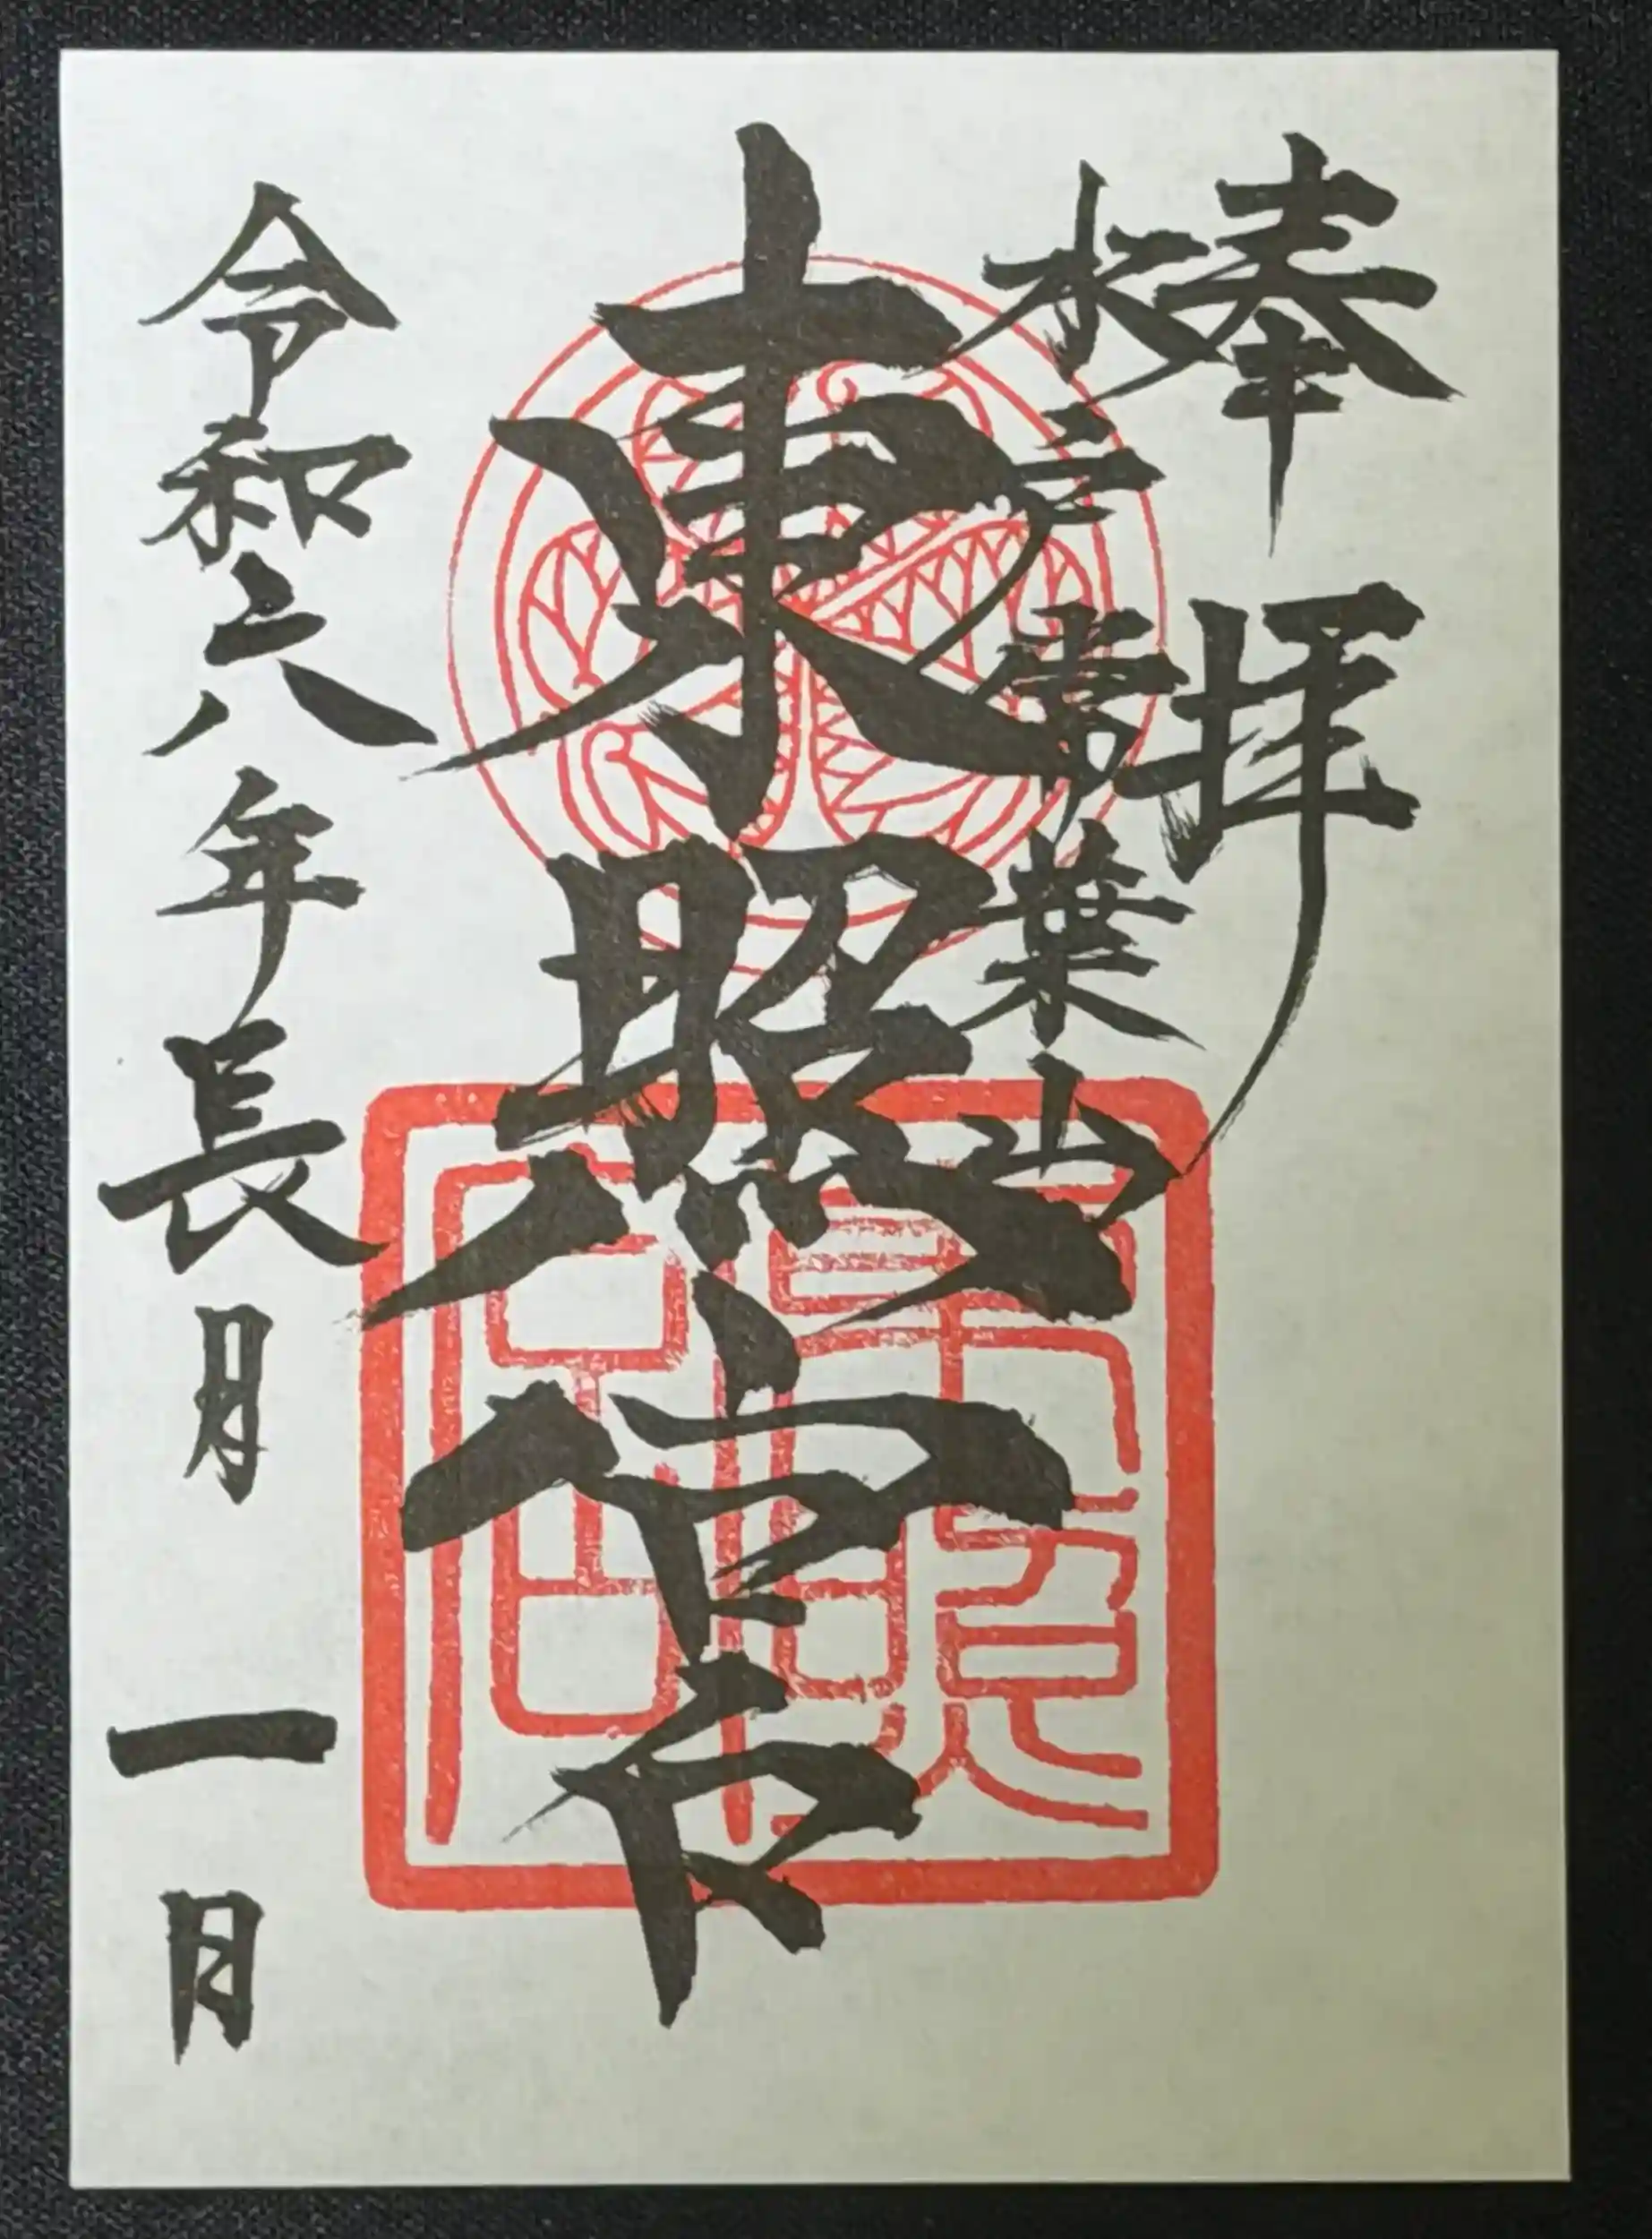 奉拝
水戸常葉山
東照宮
令和六年長月一日
東照宮印